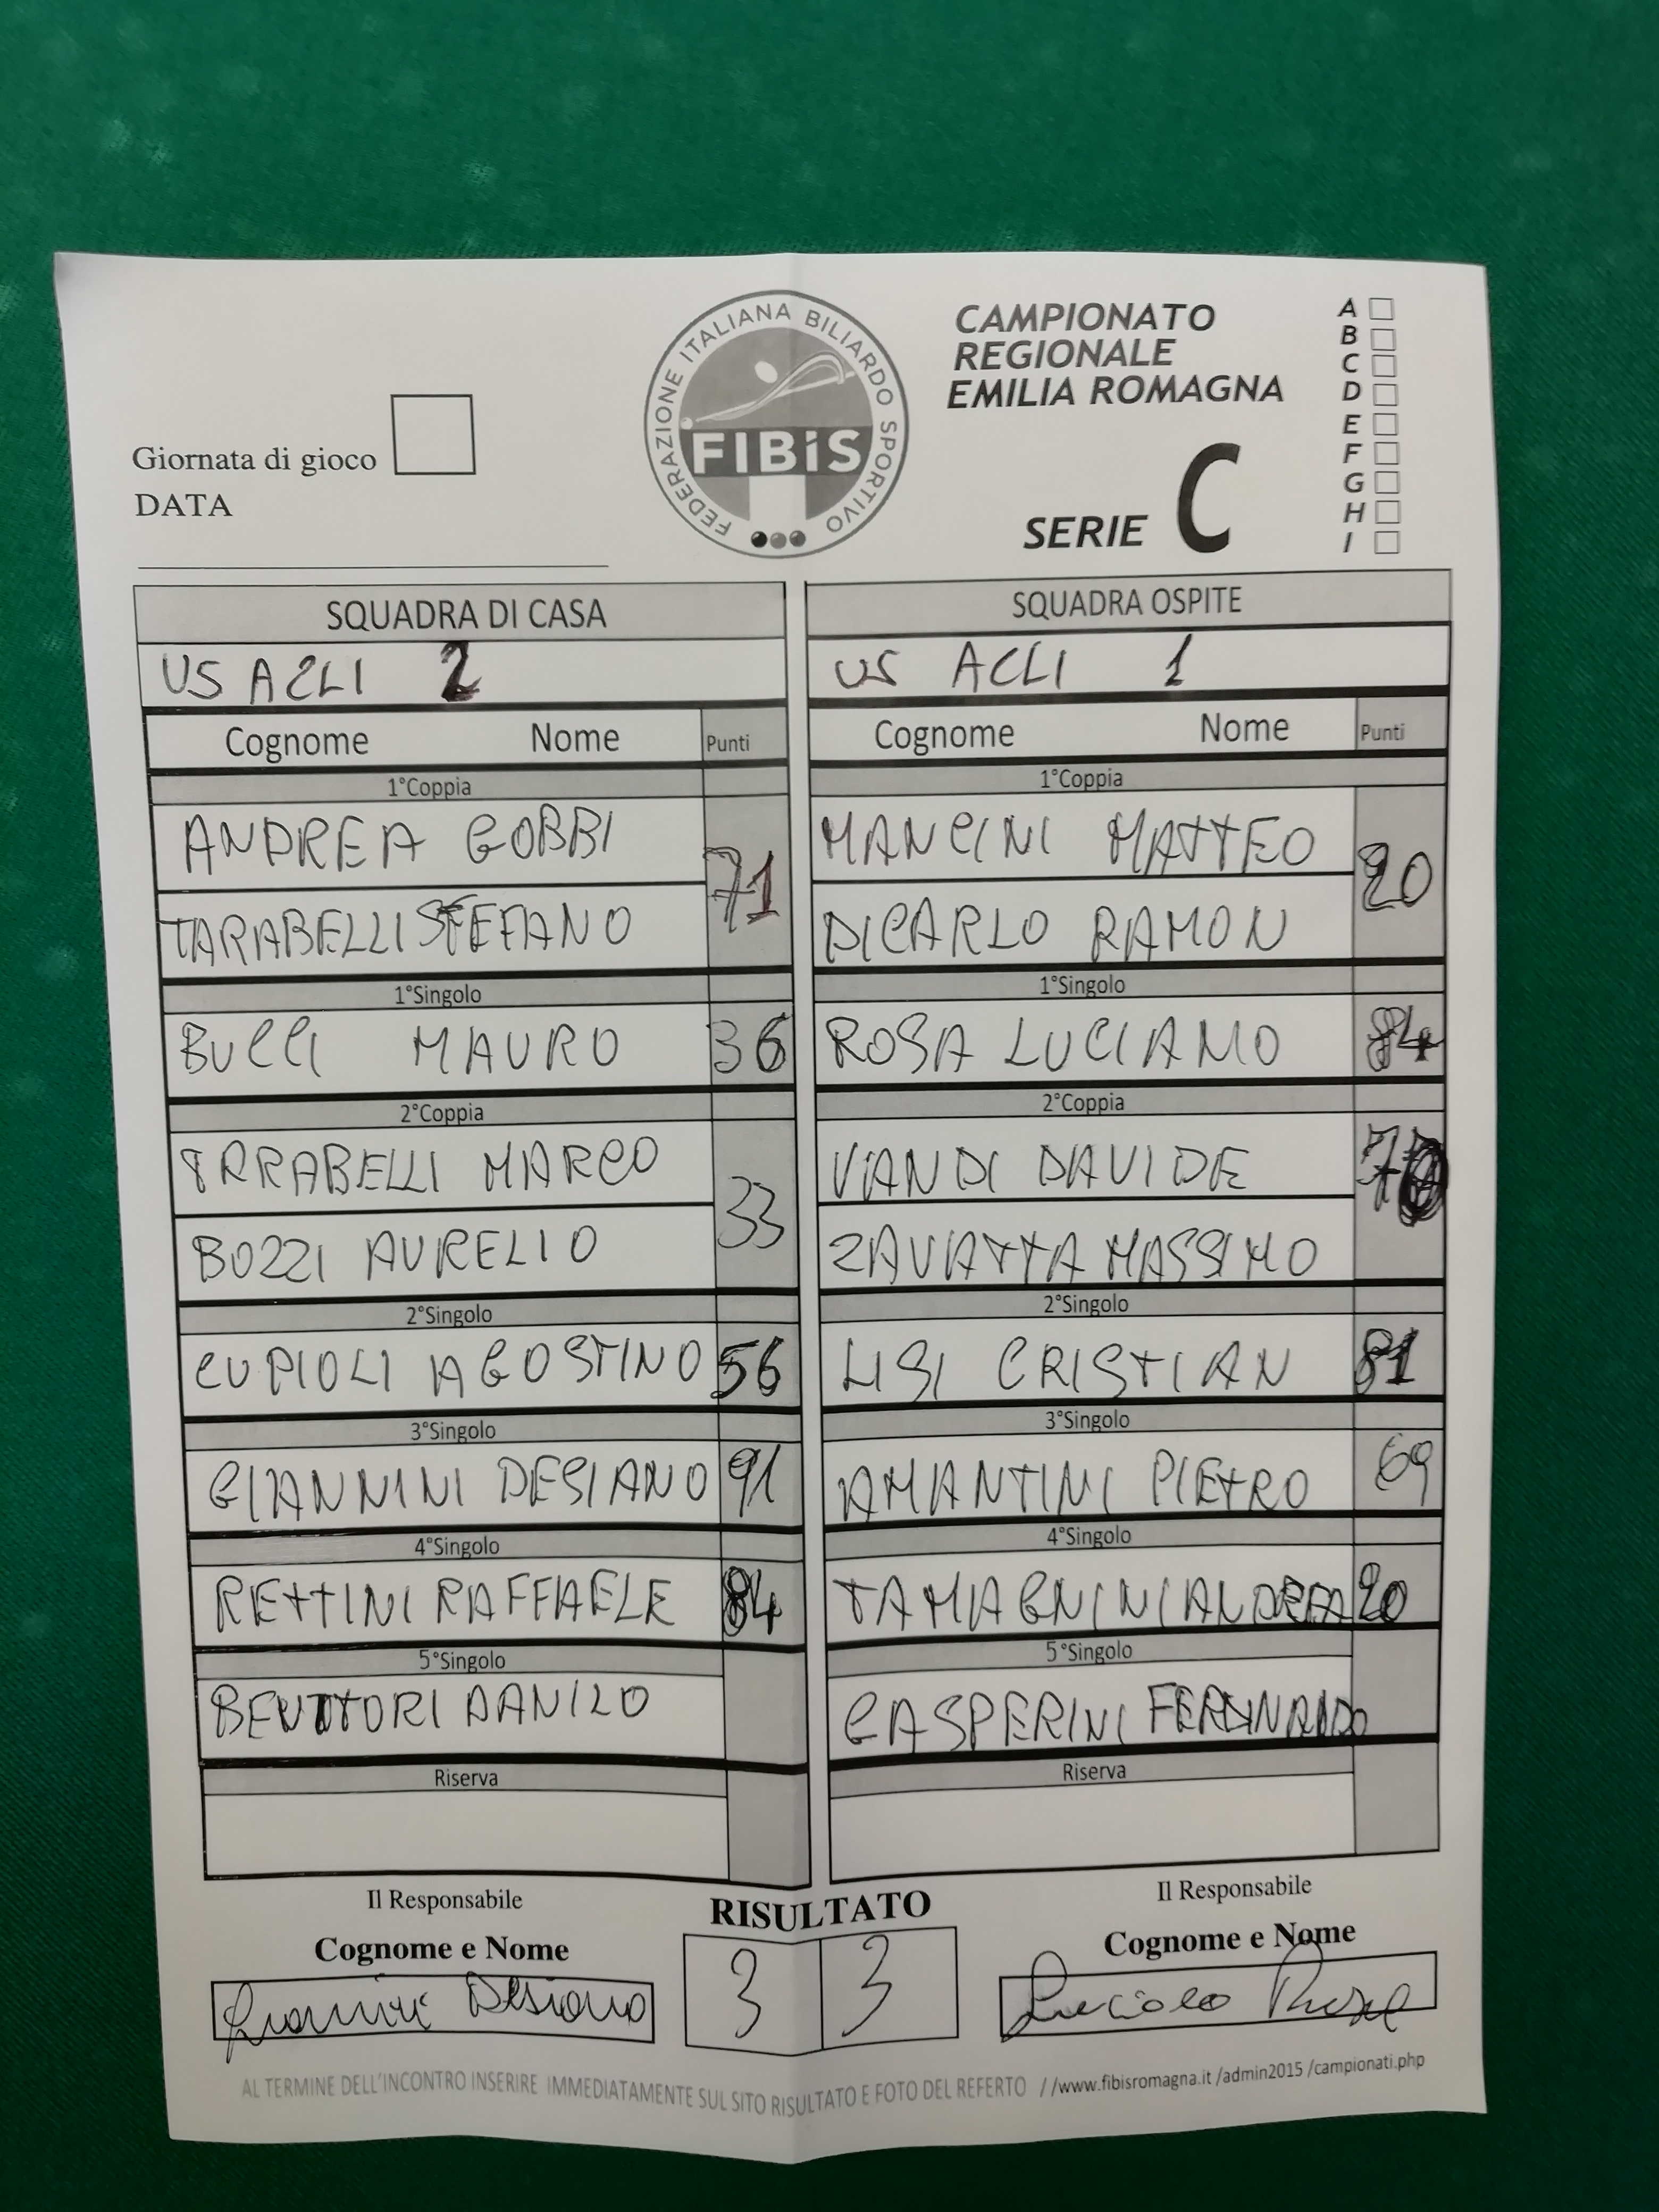 FEDERAZIONE ITALIANA BILIARDO SPORTIVO
FIBiS
CAMPIONATO
REGIONALE
EMILIA ROMAGNA
SERIE C
A
B
C
D
E
F
G
H
I
Giornata di gioco
DATA
SQUADRA DI CASA
US ACLI 2
Cognome Nome Punti
1°Coppia
ANDREA GOBBI
71
TARABELLI STEFANO
1°Singolo
BUCCI MAURO 36
2°Coppia
TRRABELLI MARCO
33
BOZZI AURELIO
2°Singolo
CUPIOLI AGOSTINO 56
3°Singolo
GIANNINI DESIANO 91
4°Singolo
RETTINI RAFFAELE 84
5°Singolo
BENTTORI DANILO
Riserva
SQUADRA OSPITE
US ACLI 1
Cognome Nome Punti
1°Coppia
MANCINI MATTEO
20
DICARLO RAMON
1°Singolo
ROSA LUCIAMO 84
2°Coppia
VANDI DAVIDE
ZAVATTA MASSIMO
2°Singolo
LISI CRISTIAN 81
3°Singolo
AMANTINI PIETRO 69
4°Singolo
TAMAGNINI ANDREA 20
5°Singolo
GASPERINI FERDINANDO
Riserva
Il Responsabile
Cognome e Nome
Giannini Desiano
RISULTATO
3 3
Il Responsabile
Cognome e Nome
Luciano Rosa
AL TERMINE DELL'INCONTRO INSERIRE IMMEDIATAMENTE SUL SITO RISULTATO E FOTO DEL REFERTO //www.fibisromagna.it /admin2015 /campionati.php